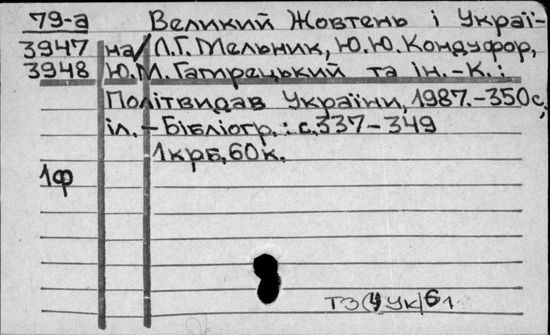 79-а Великий Жовтень і Украї-
3947 на/Л.Г.Мельник, Ю.Ю.Кондуфор,
3948 Ю.М.Гамрецький та ін.-К.:
Політвидав України, 1987.-350с,
іл.-Бібліогр.: с.337-349
1крб,60к.
1ф
Т3(4УК)61